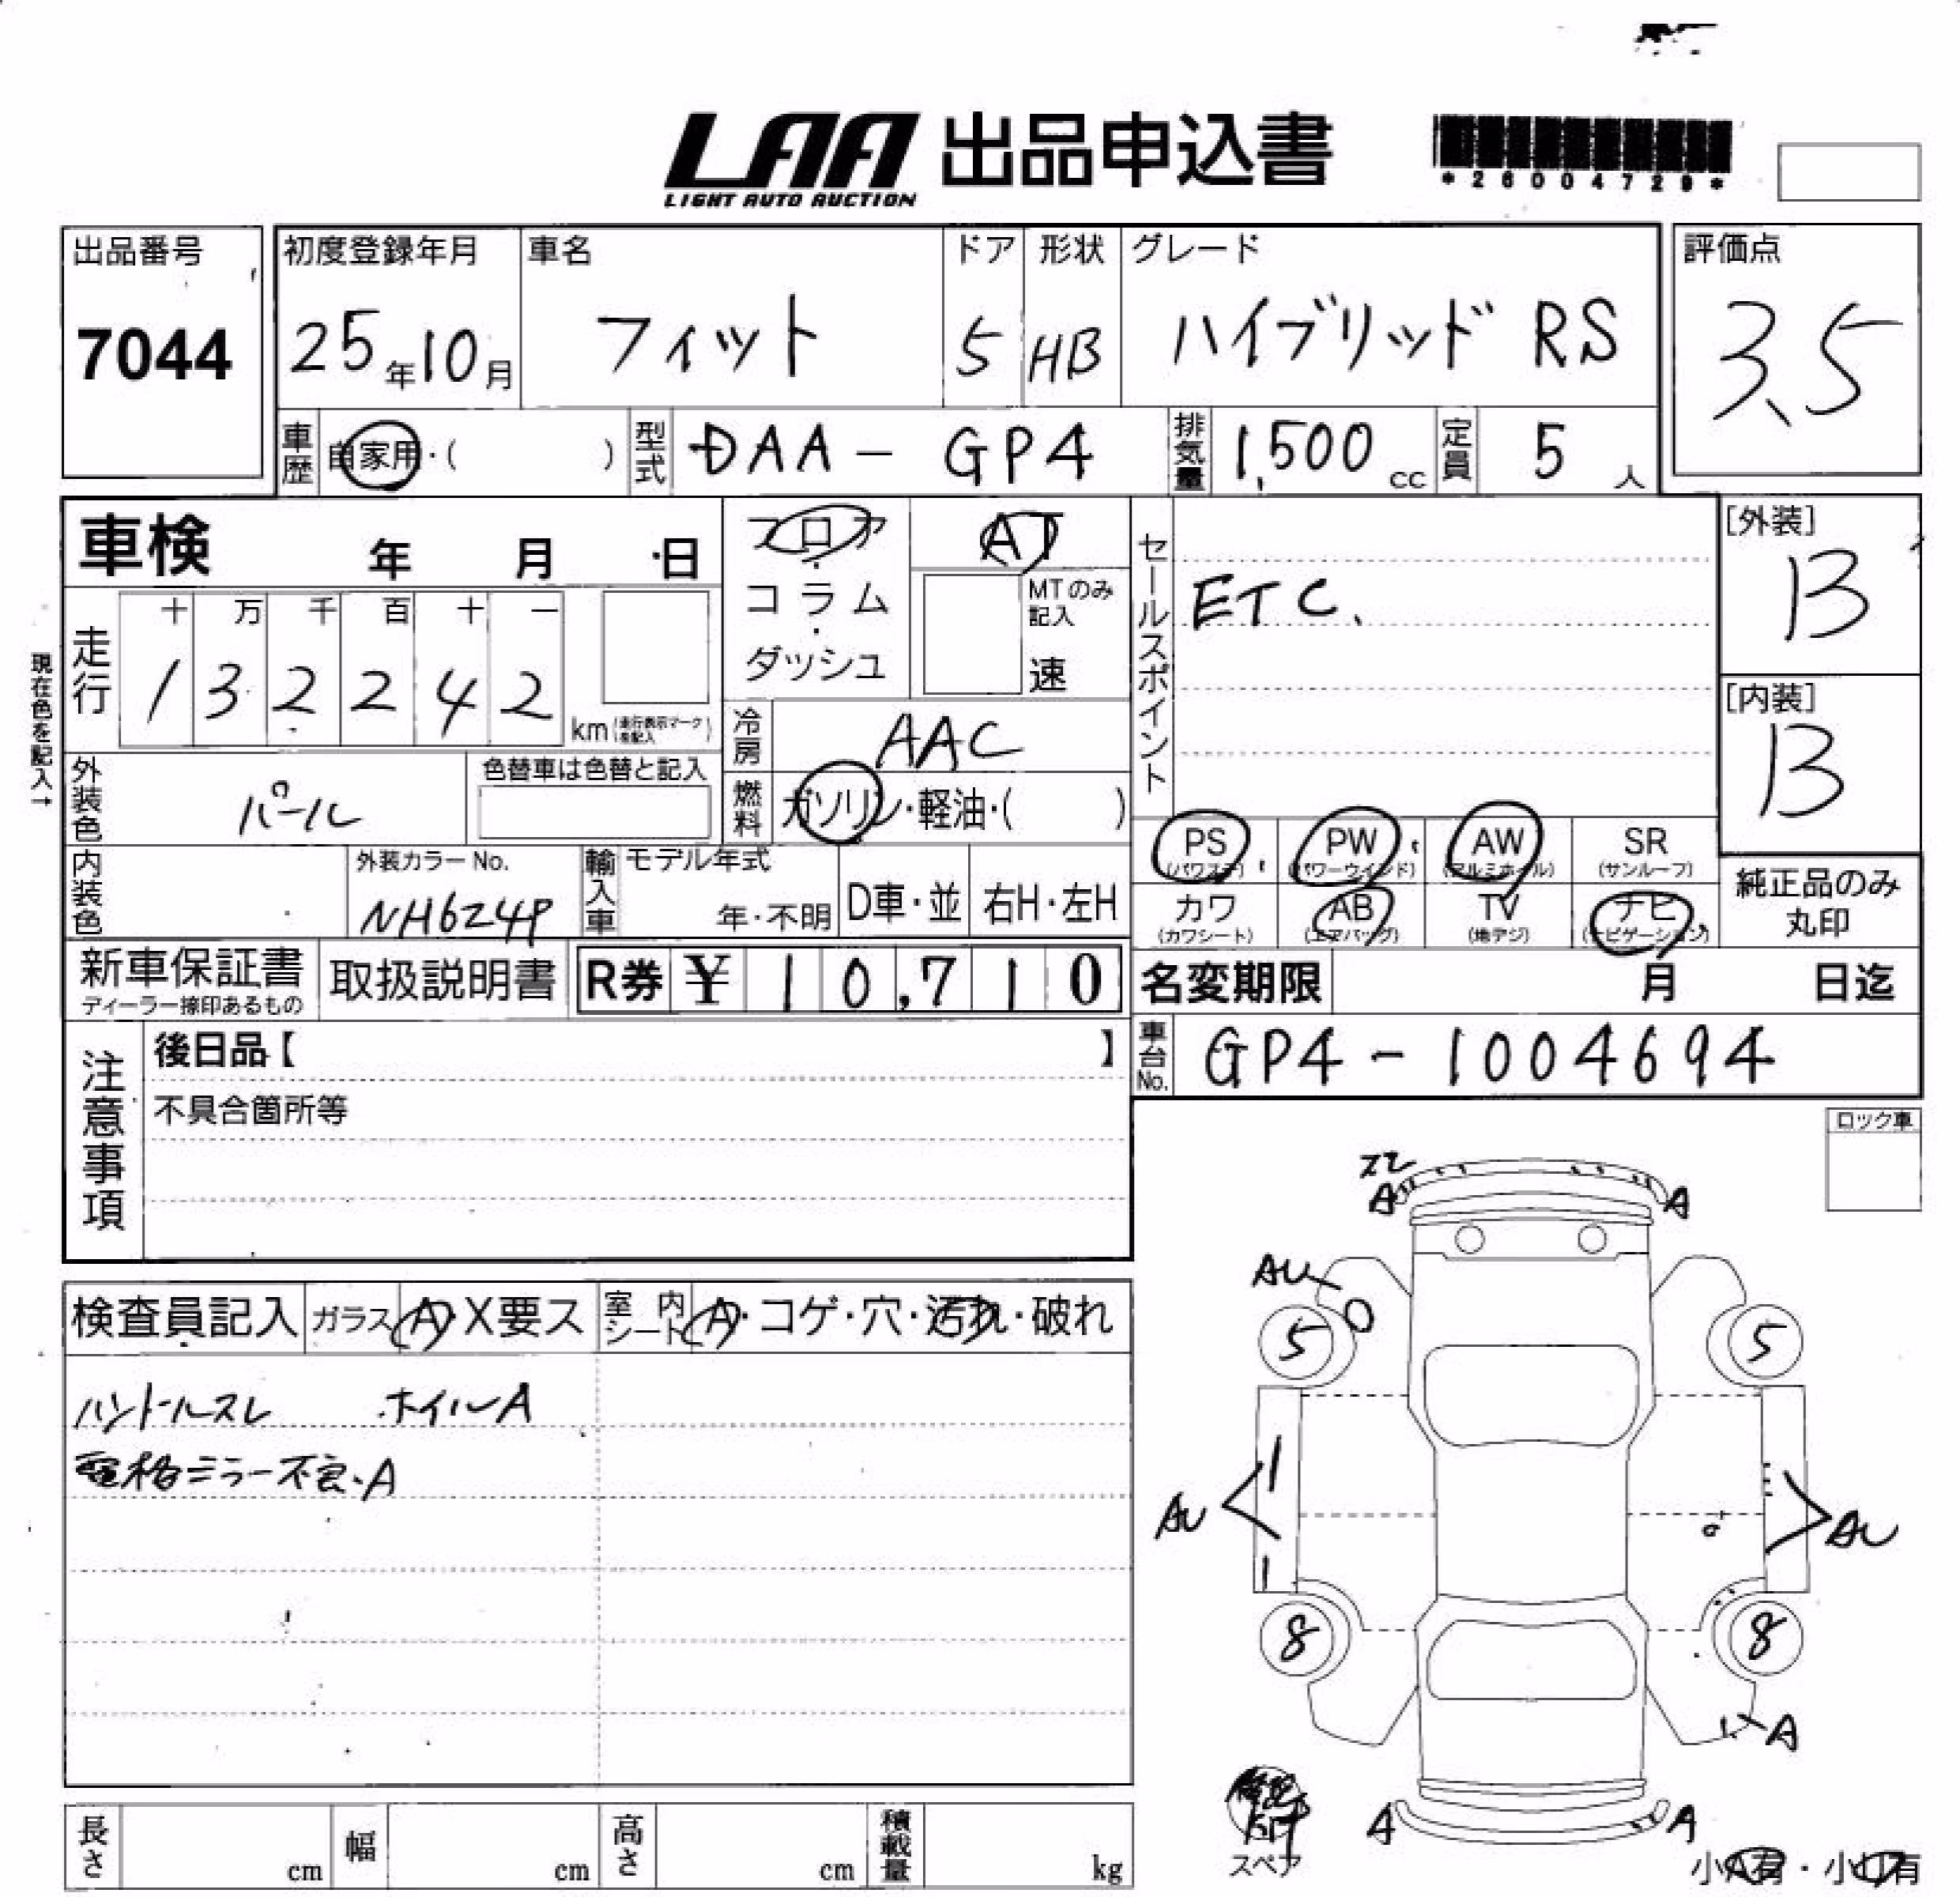 LAA 出品申込書
LIGHT AUTO AUCTION
*26004729*
出品番号
7044
初度登録年月
25年10月
車名
フィット
ドア
5
形状
HB
グレード
ハイブリッド RS
評価点
3.5
車歴
自家用・( )
型式
DAA-GP4
排気量
1,500 cc
定員
5 人
車検 年 月 日
フロア
コラム
ダッシュ
AT
MTのみ記入
速
セールスポイント
ETC.
[外装]
B
[内装]
B
現在色を記入→
走行
十 万 千 百 十 一
1 3 2 2 4 2
km(走行表示マークを記入)
冷房
AAC
燃料
ガソリン・軽油・( )
外装色
パール
色替車は色替と記入
内装色
外装カラーNo.
NH624P
輸入車
モデル年式
年・不明
D車・並
右H・左H
PS
(パワステ)
PW
(パワーウインド)
AW
(アルミホイル)
SR
(サンルーフ)
カワ
(カワシート)
AB
(エアバッグ)
TV
(地デジ)
ナビ
(ナビゲーション)
純正品のみ
丸印
新車保証書
ディーラー捺印あるもの
取扱説明書
R券 ¥10,710
名変期限 月 日迄
車台No.
GP4-1004694
注意事項
後日品【 】
不具合箇所等
ロック車
検査員記入
ガラス A・X要ス
室内シート A・コゲ・穴・汚れ・破れ
ハンドルスレ ホイルA
電格ミラー不良・A
ズレ
A A
AU
5 5
AU AU
8 8
A
A A
スペア
小A有・小U有
長さ cm
幅 cm
高さ cm
積載量 kg